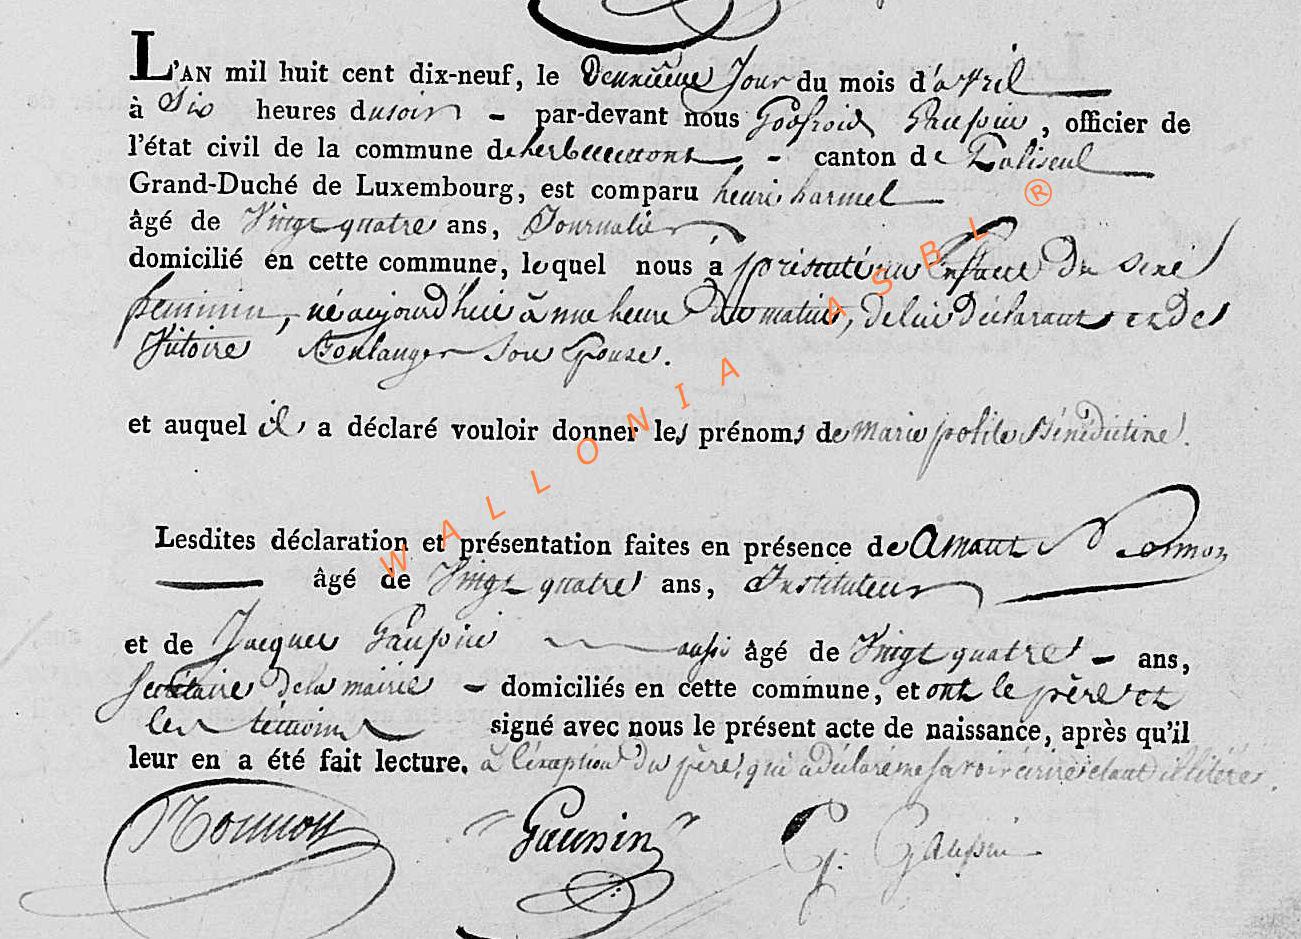 L'AN mil huit cent dix-neuf, le Deuxième Jour du mois d'avril
à Six heures du soir - par-devant nous Godfroid Gaupin, officier de
l'état civil de la commune de herbeumont, - canton de Paliseul
Grand-Duché de Luxembourg, est comparu henri harmel
âgé de Vingt quatre ans, Journalier
domicilié en cette commune, lequel nous à présenté un Enfant du sexe
feminin, né aujourd'hui à une heure du matin, de lui déclarant et de
Victoire Boulanger son Epouse.
et auquel il a déclaré vouloir donner les prénoms de Marie polite Bénédictine.
Lesdites déclaration et présentation faites en présence de Amant
âgé de Vingt quatre ans, Instituteur
et de Jacques Gaupin aussi âgé de Vingt quatre - ans,
secrétaire de la mairie - domiciliés en cette commune, et ont le père et
les témoins signé avec nous le présent acte de naissance, après qu'il
leur en a été fait lecture. à l'éxception du père, qui a déclaré ne savoir écrire étant illitéré.
Gaupin G. Gaupin
WALLONIA ASBL ®